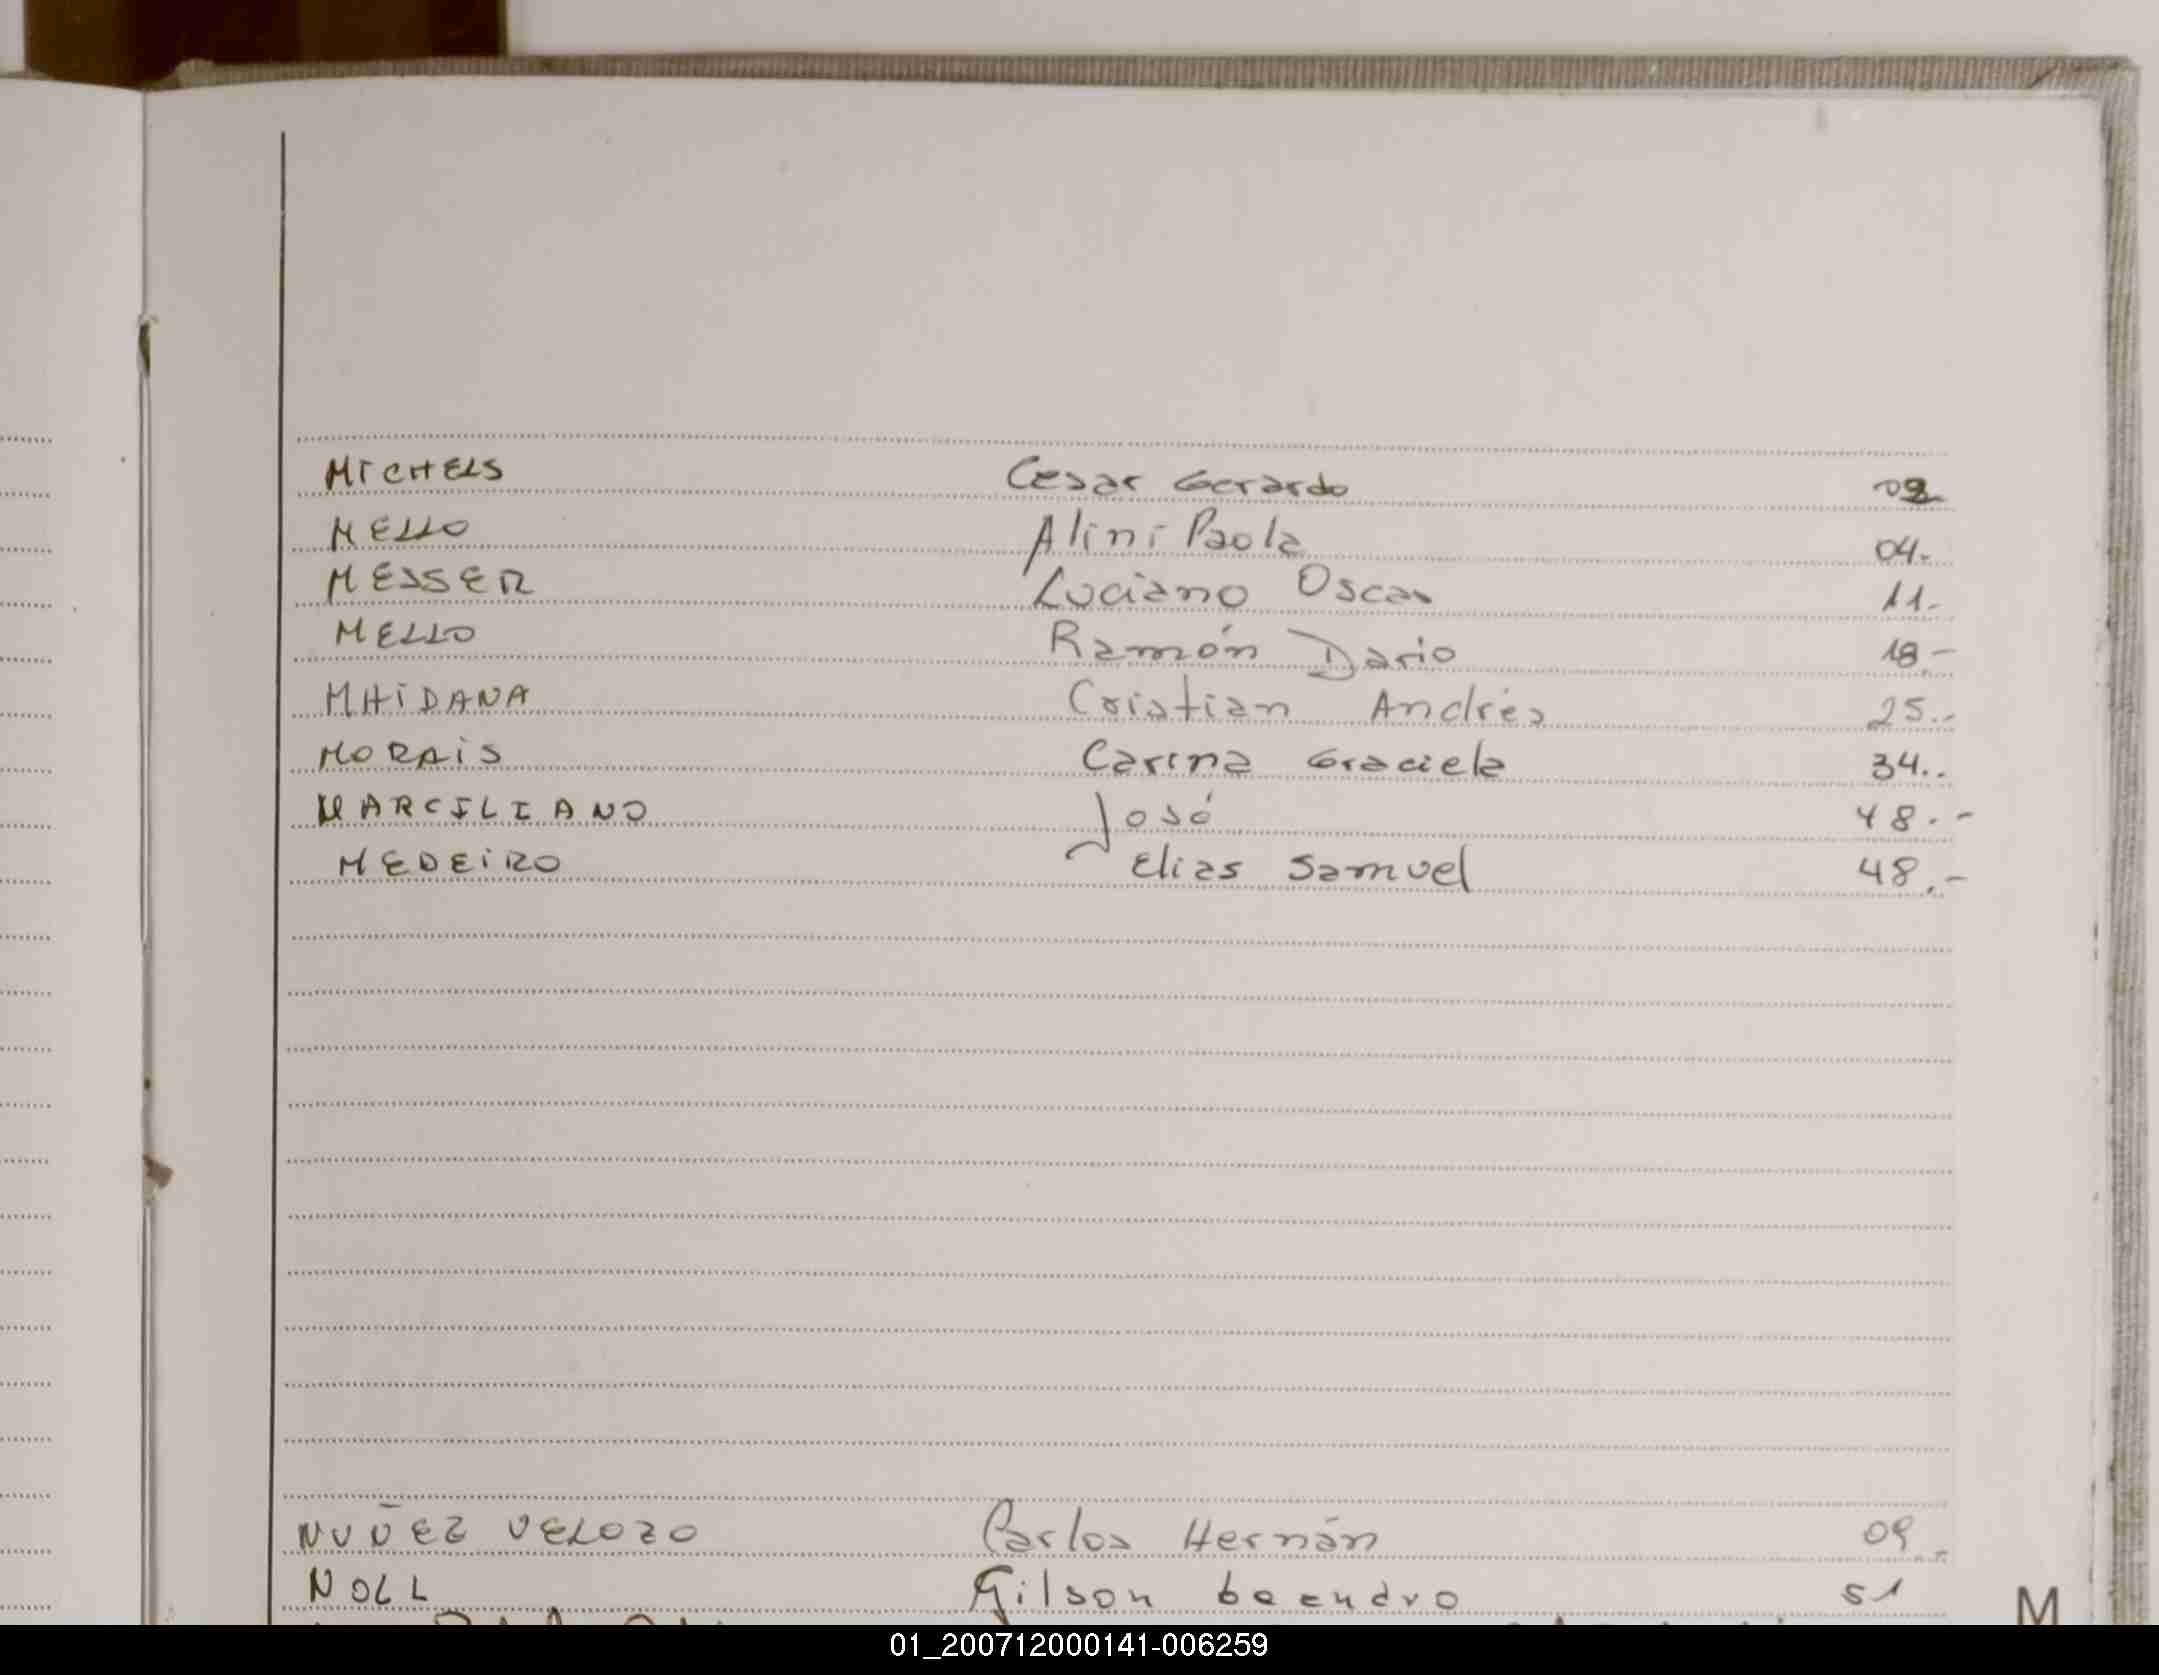 MICHELS Cesar Gerardo 02
MELLO Alini Paola 04.
MESSER Luciano Oscar 11.
MELLO Ramón Dario 18.-
MHiDANA Cristian Andrés 25.-
MORAiS Carina Graciela 34..
MARCILIANO José 48.-
MEDEiRO Elias Samuel 48.-
NUÑEZ VELOZO Carlos Hernán 09.-
NOLL Gilson Leandro 51
M
01_200712000141-006259